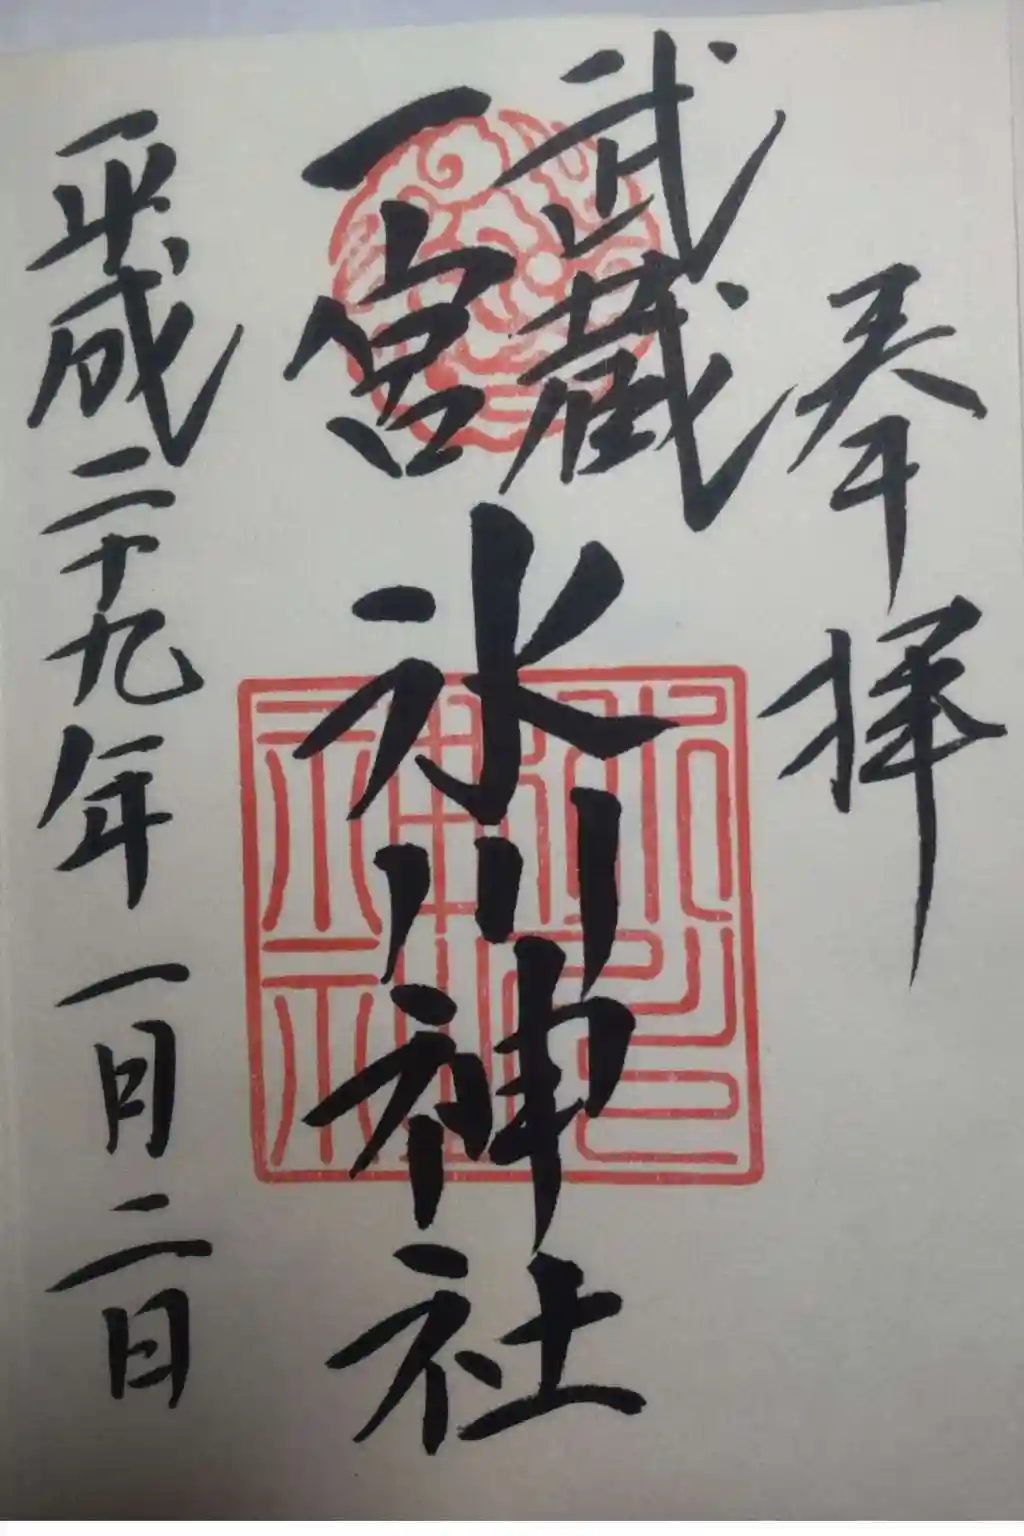 奉拝
武蔵
一宮
氷川神社
平成二十九年一月二日
氷川神社